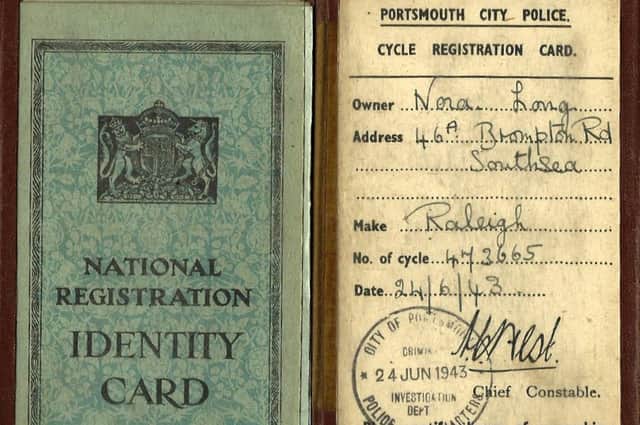 NATIONAL
REGISTRATION
IDENTITY
CARD
PORTSMOUTH CITY POLICE.
CYCLE REGISTRATION CARD.
Owner Nora Long
Address 46A Brompton Rd
Southsea
Make Raleigh
No. of cycle 473665
Date 24/6/43
CITY OF PORTSMO
CRIMIN
24 JUN 1943
INVESTIGATION
DEPT
POLICE
Chief Constable.